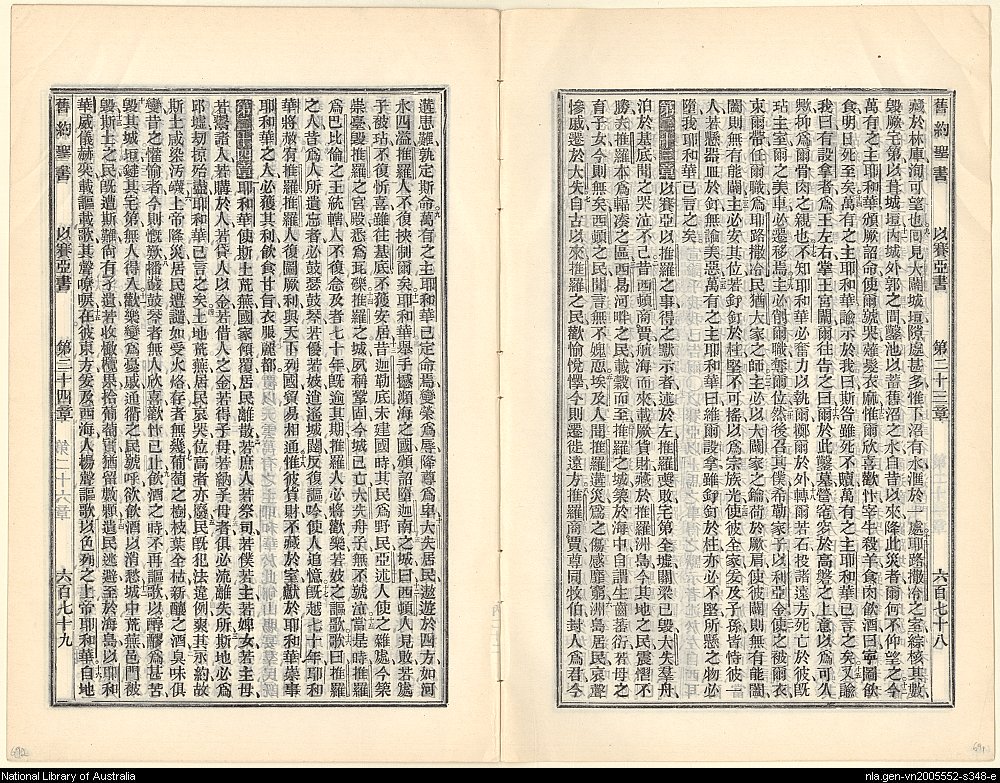 舊約聖書　以賽亞書　第二十三章　六百七十八
藏於林庫洵可望也囘見大闢城垣隙處甚多惟下沼有水滙於一處耶路撒冷之室綜核其數
毀厥宅第以葺城垣內城外郭之間鑿池以蓄舊沼之水自昔以來降此災者爾何不仰望之今
萬有之主耶和華頒厥詔命使爾號哭薙髮衣麻惟爾欣喜歡忭宰牛殺羊食肉飲酒曰寧圖飲
食明日死至矣萬有之主耶和華諭示於我曰斯咎雖死不贖萬有之主耶和華已言之矣又諭
我曰有設拿者爲王左右掌王宮闕爾往告之曰爾於此鑿墓營窀穸於高磐之上意以爲可久
歟抑爲爾骨肉之親也不知耶和華必奮力以執爾擲爾於外轉爾若石投諸遠方死亡於彼旣
玷主室爾之美車必遷移焉主必削爾職奪爾位然後召其僕希勒家子以利亞金使之被爾衣
束爾帶任爾職爲耶路撒冷民猶大家之師主必以大闢家之鑰荷於厥肩使彼闢則無有能闔
闔則無有能闢主必安其位若釘釘於柱堅不可搖以爲宗族光使彼全家爰及子孫皆恃彼一
人若懸器皿於釘無論美惡萬有之主耶和華曰維爾設拿雖釘釘於柱亦必不堅所懸之物必
墮我耶和華已言之矣
第二十三章以推羅之事得之默示者述於左推羅喪敗宅第全墟關梁已毀大失羣舟
泊於基底聞之哭泣不已昔西頓商賈航海而來載厥貨財藏於推羅洲島今其地之民震慴不
勝夫推羅本爲輻湊之區西曷河畔之民載穀而至推羅之城築於海中自謂生齒蕃衍若母之
育子女今則無矣西頓之民聞言無不媿恧埃及人聞推羅遘災爲之傷感靡窮洲島居民哀聲
慘戚遷於大失自古以來推羅之民歡愉悅懌今則遷徙遠方推羅商賈尊同牧伯封人爲君今
遘患難孰定斯命萬有之主耶和華已定命焉變榮爲辱降尊爲卑大失居民遨遊於四方如河
水四溢推羅人不復挾制爾矣耶和華舉手撼瀕海之國頒詔墮迦南之城曰西頓人見敗若處
子被玷不復忻喜雖往基底不獲安居昔迦勒底未建國時其民爲野民亞述人使之雜處今築
崇臺毀推羅之宮殿悉爲瓦礫推羅之城夙稱鞏固今城已亡大失舟子無不號泣當是時推羅
爲巴比倫之王統轄人不復念及者七十年旣逾其期推羅人必將歡樂若妓之謳歌歌曰推羅
之人昔爲人所遺忘者必鼓瑟鼓琴若優若妓逍遙城闉反復謳吟使人追憶旣越七十年耶和
華將赦宥推羅推羅人復圖厥利與天下列國貿易相通惟彼貨財不藏於室獻於耶和華崇事
耶和華之人必獲其利飲食甘旨衣服麗都
第二十四章耶和華使斯土荒蕪國家傾覆居民離散庶人若祭司若僕若主若婢女若主母
若鬻諸人若購於人若貸人以金若借人之金若得子母若納子母者俱必流離失所斯地必爲
耶墟劫掠殆盡耶和華已言之矣土地荒蕪居民哀哭位高者亦隱民旣犯法違例爽其永約故
斯土咸染汚衊上帝降災居民遭譴如受火烙存者無幾葡萄之樹枝葉全枯新釀之酒臭味俱
變昔之懽愉者今則慨歎播鼗鼓琴者無人欣喜歡忭已止飲酒之時不再謳歌以醇醪爲甚苦
毀其城垣鍵其宅第無人得入歡樂變爲憂戚通衢之民號呼欲飲酒以消愁城中荒蕪邑門被
毀斯土之民旣遭斯難尚有孑遺若收橄欖果拾葡萄實猶留數顆遺民逃避至於海島以耶和
華威儀赫奕載謳載歌其聲嘹唳在彼東方爰及西海人揚聲謳歌以色列之上帝耶和華自地
舊約聖書　以賽亞書　第二十四章　六百七十九
National Library of Australia
nla.gen-vn2005552-s348-e